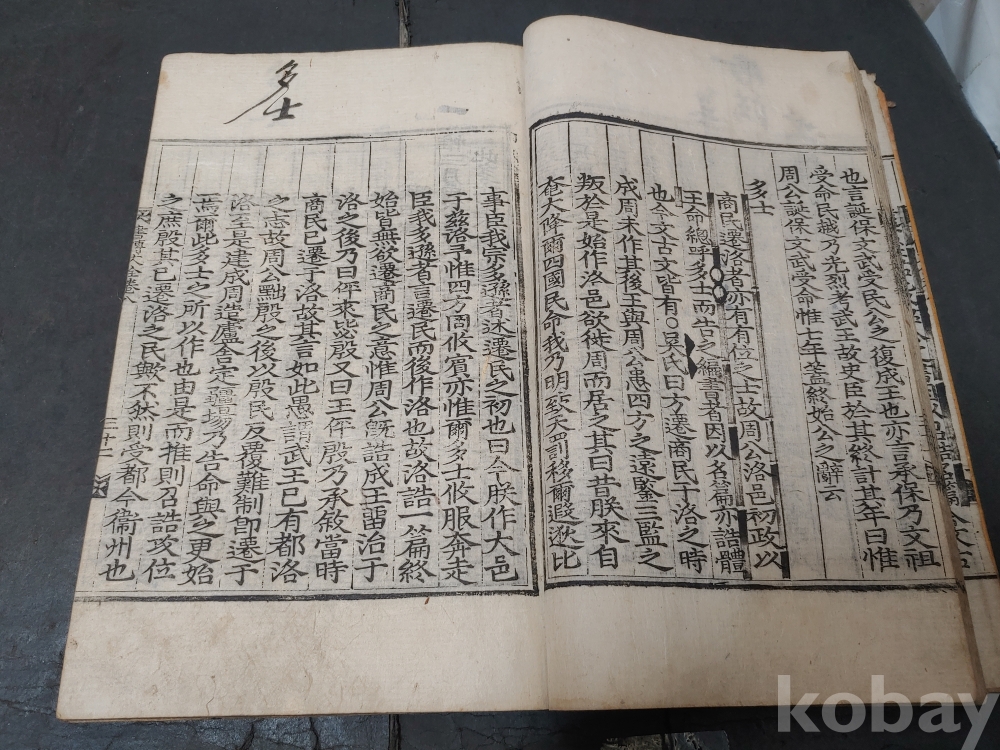 也言誕保文武受民公之復成王也亦言承保乃文祖
受命民越乃光烈考武王故史臣於其終計其年曰惟
周公誕保文武受命惟七年蓋終始公之辭云
多士
商民遷洛者亦有有位之士故周公洛邑初政以
王命總呼多士而告之編書者因以名篇亦誥體
也今文古文皆有○吳氏曰方遷商民于洛之時
成周未作其後王與周公患四方之遠鑒三監之
叛於是始作洛邑欲徙周而居之其曰昔朕來自
奄大降爾四國民命我乃明致天罰移爾遐逖比
事臣我宗多遜者述遷民之初也曰今朕作大邑
于玆洛予惟四方罔攸賓亦惟爾多士攸服奔走
臣我多遜者言遷民而後作洛也故洛誥一篇終
始皆無欲遷商民之意惟周公旣誥成王留治于
洛之後乃曰伻來毖殷又曰王伻殷乃承敘當時
商民已遷于洛故其言如此愚謂武王已有都洛
之志故周公黜殷之後以殷民反覆難制卽遷于
洛至是建成周造廬舍定疆埸乃告命與之更始
焉爾此多士之所以作也由是而推則召誥攻位
之庶殷其已遷洛之民歟不然則受都今衞州也
多士
kobay